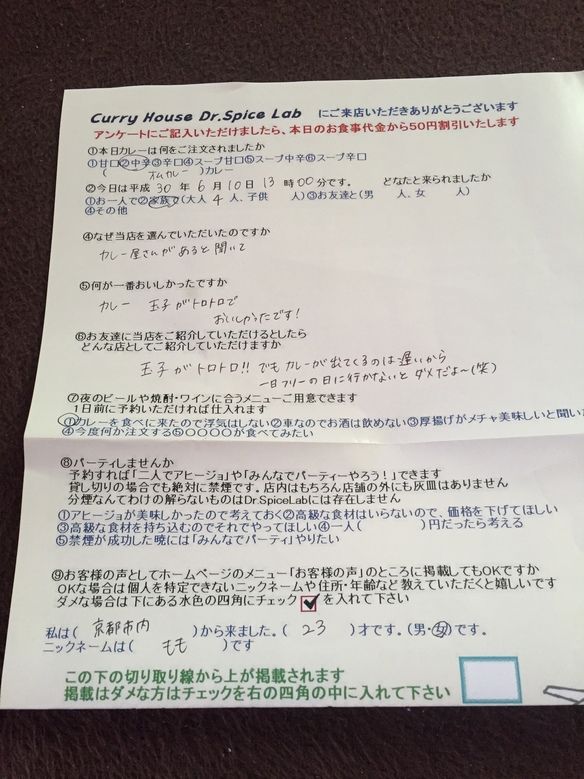 Curry House Dr.Spice Lab にご来店いただきありがとうございます
アンケートにご記入いただけましたら、本日のお食事代金から50円割引いたします
①本日カレーは何をご注文されましたか
①甘口②中辛③辛口④スープ甘口⑤スープ中辛⑥スープ辛口
( オムカレー )カレー
②今日は平成 30 年 6 月 10 日 13 時 00 分です。 どなたと来られましたか
①お一人で②家族で(大人 4 人、子供 人)③お友達と(男 人、女 人)
④その他
④なぜ当店を選んでいただいたのですか
カレー屋さんがあると聞いて
⑤何が一番おいしかったですか
カレー 玉子がトロトロで
おいしかったです!
⑥お友達に当店をご紹介していただけるとしたら
どんな店としてご紹介していただけますか
玉子がトロトロ!! でもカレーが出てくるのは遅いから
一日フリーの日に行かないとダメだよ〜(笑)
⑦夜のビールや焼酎・ワインに合うメニューご用意できます
1日前に予約いただければ仕入れます
①カレーを食べに来たので浮気はしない②車なのでお酒は飲めない③厚揚げがメチャ美味しいと聞い
④今度何か注文する⑤○○○○が食べてみたい
⑧パーティしませんか
予約すれば「二人でアヒージョ」や「みんなでパーティーやろう!」できます
貸し切りの場合でも絶対に禁煙です。店内はもちろん店舗の外にも灰皿はありません
分煙なんてわけの解らないものはDr.SpiceLabには存在しません
①アヒージョが美味しかったので考えておく②高級な食材はいらないので、価格を下げてほしい
③高級な食材を持ち込むのでそれでやってほしい④一人( )円だったら考える
⑤禁煙が成功した暁には「みんなでパーティ」やりたい
⑨お客様の声としてホームページのメニュー「お客様の声」のところに掲載してもOKですか
OKな場合は個人を特定できないニックネームや住所・年齢など教えていただくと嬉しいです
ダメな場合は下にある水色の四角にチェック を入れて下さい
私は( 京都市内 )から来ました。( 23 )才です。(男・女)です。
ニックネームは( もも )です
この下の切り取り線から上が掲載されます
掲載はダメな方はチェックを右の四角の中に入れて下さい